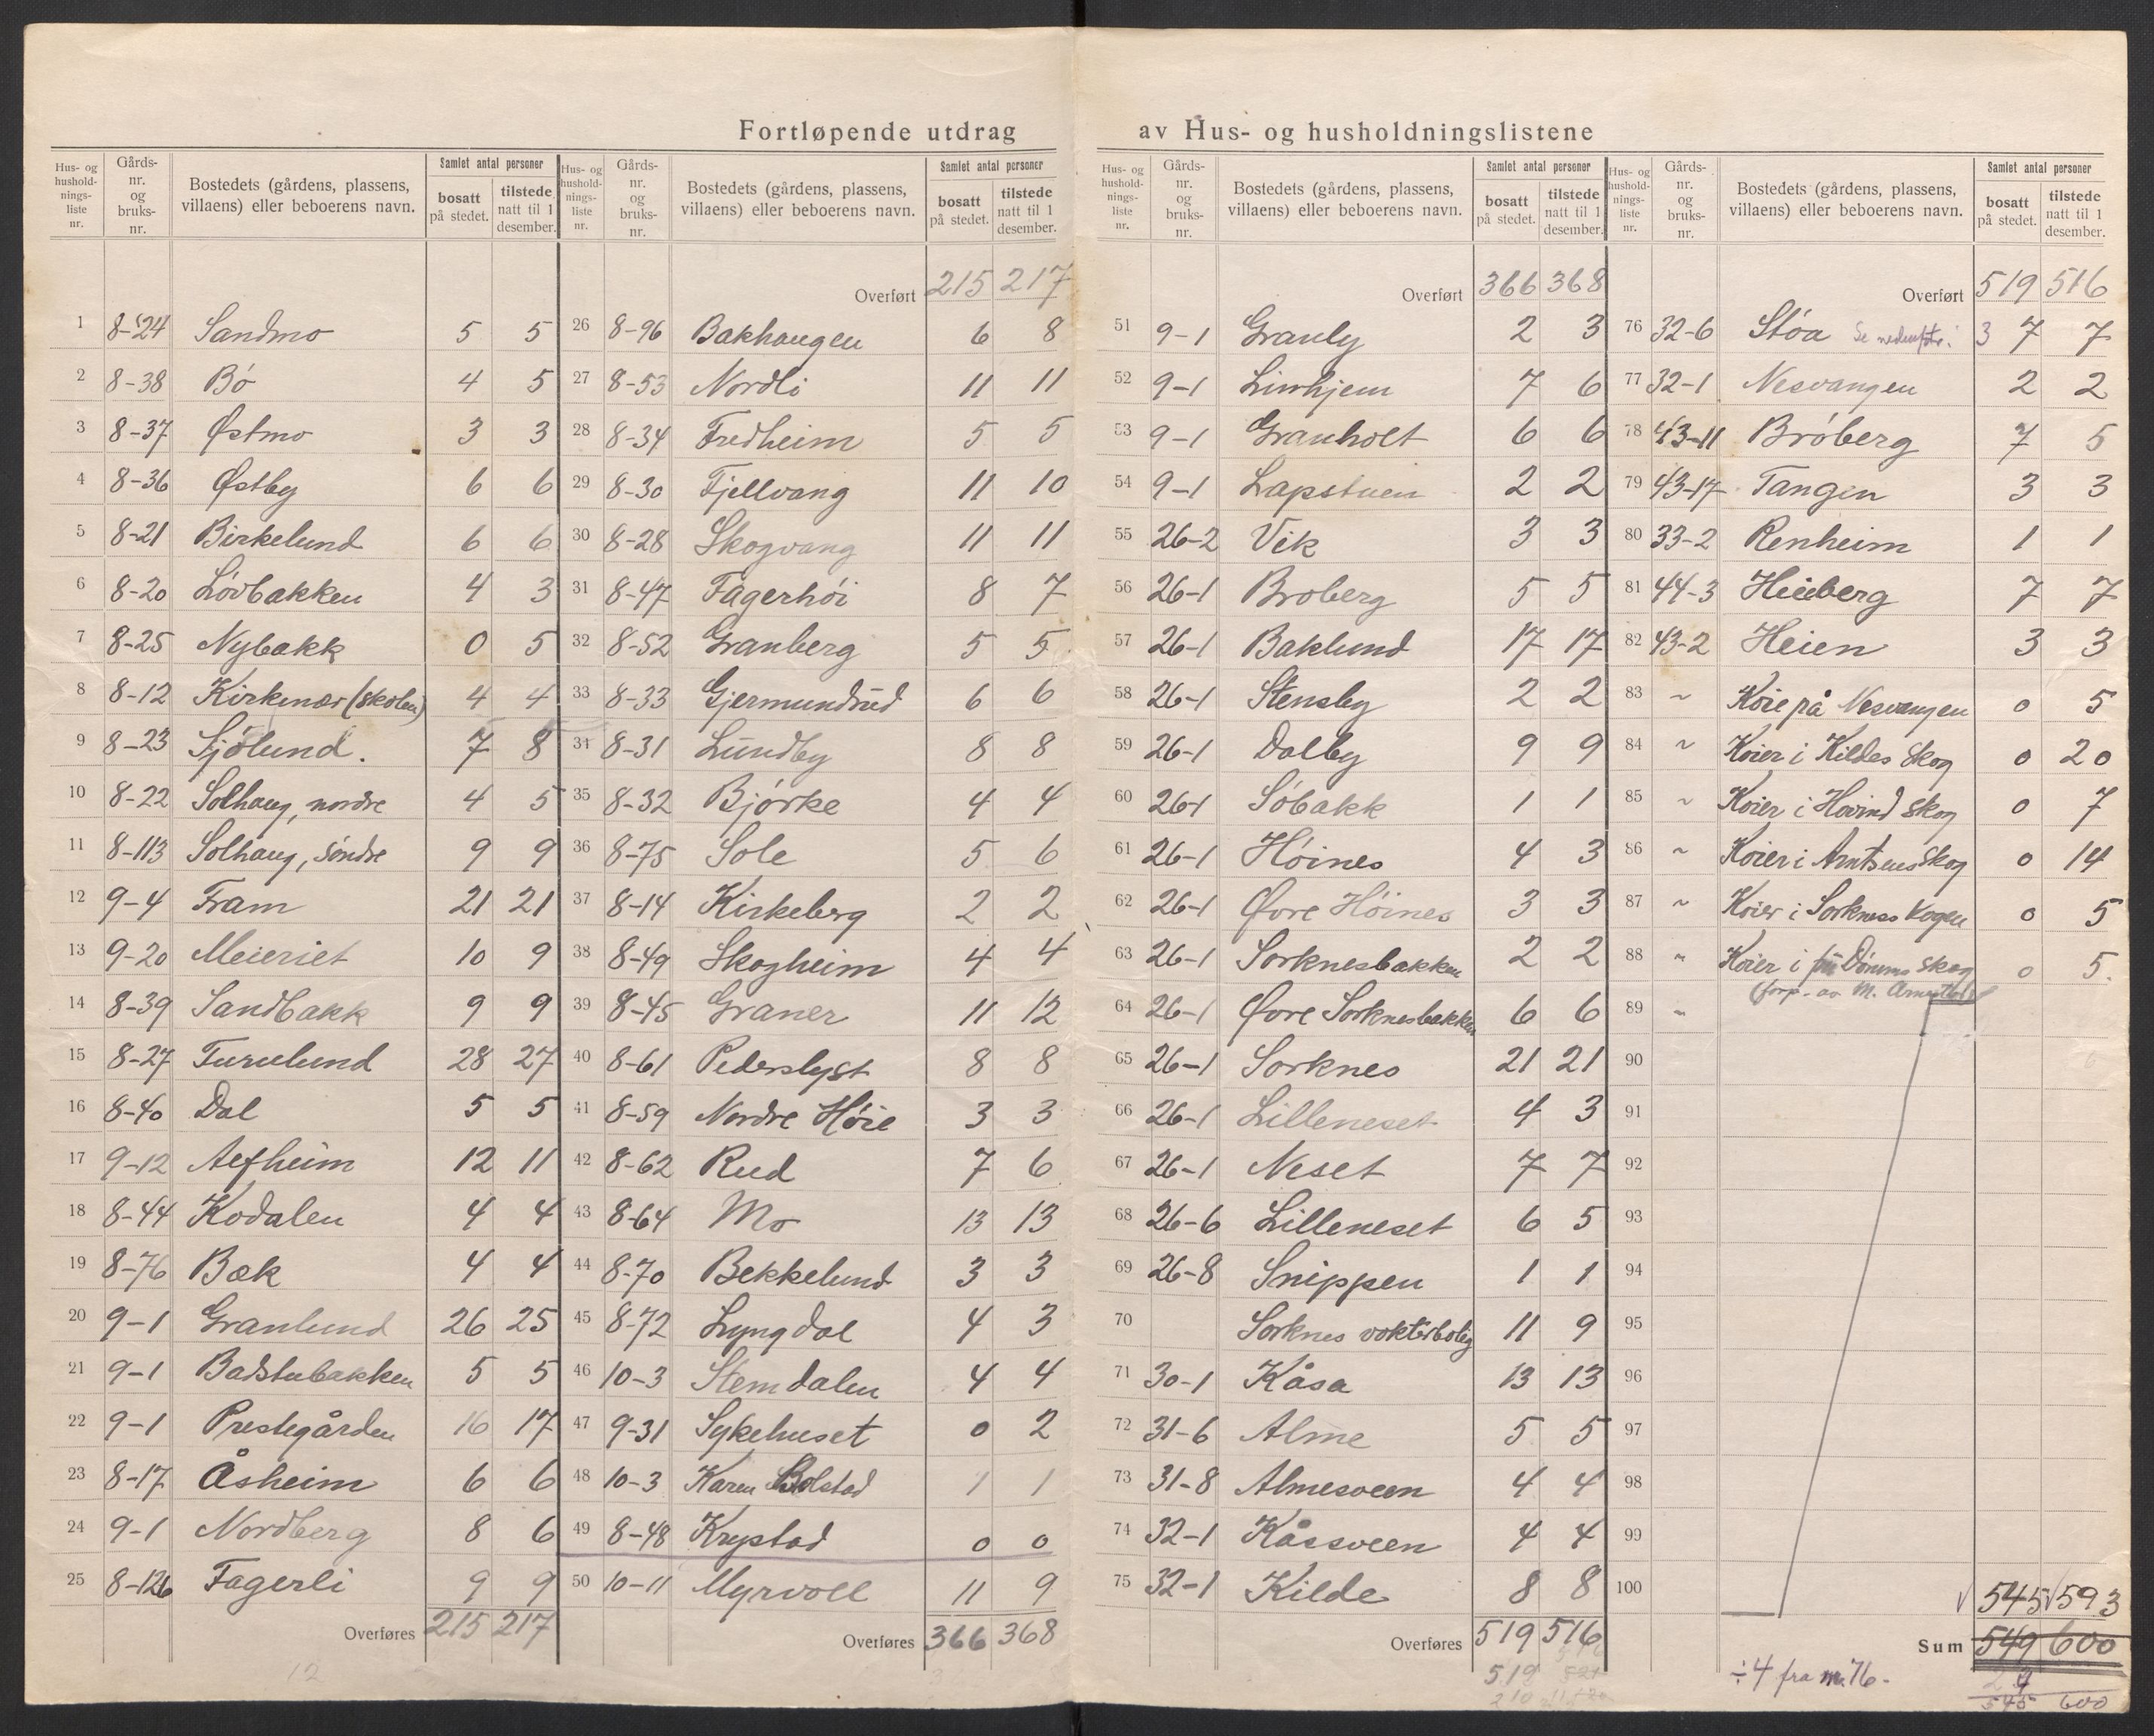 Fortløpende utdrag av Hus- og husholdningslistene
Hus- og husholdnings-liste nr. | Gårds-nr. og bruks-nr. | Bostedets (gårdens, plassens, villaens) eller beboerens navn. | Samlet antal personer | bosatt på stedet. | tilstede natt til 1 desember.
1 8-24 Sandmo 5 5
2 8-38 Bö 4 5
3 8-37 Östmo 3 3
4 8-36 Östby 6 6
5 8-21 Birkelund 6 6
6 8-20 Lövbakken 4 3
7 8-25 Nybakk 0 5
8 8-12 Kirkenær (skolen) 4 4
9 8-23 Sjölund. 7 8
10 8-22 Solhaug, nordre 4 5
11 8-113 Solhaug, söndre 9 9
12 9-4 Fram 21 21
13 9-20 Meieriet 10 9
14 8-39 Sandbakk 9 9
15 8-27 Furulund 28 27
16 8-40 Dal 5 5
17 9-12 Alfheim 12 11
18 8-44 Kodalen 4 4
19 8-76 Bæk 4 4
20 9-1 Granlund 26 25
21 9-1 Badstubakken 5 5
22 9-1 Prestegården 16 17
23 8-17 Åsheim 6 6
24 9-1 Nordberg 8 6
25 8-126 Fagerli 9 9
Overføres 215 217
12
Hus- og husholdnings-liste nr. | Gårds-nr. og bruks-nr. | Bostedets (gårdens, plassens, villaens) eller beboerens navn. | Samlet antal personer | bosatt på stedet. | tilstede natt til 1 desember.
Overført 215 217
26 8-96 Bakhaugen 6 8
27 8-53 Nordli 11 11
28 8-34 Fredheim 5 5
29 8-30 Fjellvang 11 10
30 8-28 Skogvang 11 11
31 8-47 Fagerhöi 8 7
32 8-52 Granberg 5 5
33 8-33 Gjermundrud 6 6
34 8-31 Lundby 8 8
35 8-32 Björke 4 4
36 8-75 Sole 5 6
37 8-14 Kirkeberg 2 2
38 8-49 Skogheim 4 4
39 8-45 Graner 11 12
40 8-61 Pederslyst 8 8
41 8-59 Nordre Höie 3 3
42 8-62 Rud 7 6
43 8-64 Mo 13 13
44 8-70 Bekkelund 3 3
45 8-72 Lyngdal 4 3
46 10-3 Stemdalen 4 4
47 9-31 Sykehuset 0 2
48 10-3 Karen Bolstad 1 1
49 8-48 Krystad 0 0
50 10-11 Myrvoll 11 9
Overføres 366 368
Hus- og husholdnings-liste nr. | Gårds-nr. og bruks-nr. | Bostedets (gårdens, plassens, villaens) eller beboerens navn. | Samlet antal personer | bosatt på stedet. | tilstede natt til 1 desember.
Overført 366 368
51 9-1 Granly 2 3
52 9-1 Linhjem 7 6
53 9-1 Granholt 6 6
54 9-1 Lapstuen 2 2
55 26-2 Vik 3 3
56 26-1 Broberg 5 5
57 26-1 Baklund 17 17
58 26-1 Stensby 2 2
59 26-1 Dalby 9 9
60 26-1 Söbakk 1 1
61 26-1 Höines 4 3
62 26-1 Övre Höines 3 3
63 26-1 Sorknesbakken 2 2
64 26-1 Övre Sorknesbakken 6 6
65 26-1 Sorknes 21 21
66 26-1 Lilleneset 4 3
67 26-1 Neset 7 7
68 26-6 Lilleneset 6 5
69 26-8 Snippen 1 1
70 Sorknes vokterbolig 11 9
71 30-1 Kåsa 13 13
72 31-6 Alme 5 5
73 31-8 Almesveen 4 4
74 32-1 Kåssveen 4 4
75 32-1 Kilde 8 8
Overføres 519 516
519
Hus- og husholdnings-liste nr. | Gårds-nr. og bruks-nr. | Bostedets (gårdens, plassens, villaens) eller beboerens navn. | Samlet antal personer | bosatt på stedet. | tilstede natt til 1 desember.
Overført 519 516
76 32-6 Stöa Se 3 7 7
77 32-1 Nesvangen 2 2
78 43-11 Bröberg 7 5
79 43-17 Tangen 3 3
80 33-2 Renheim 1 1
81 44-3 Heiberg 7 7
82 43-2 Heien 3 3
83 ~ Koie på Nesvangen 0 5
84 ~ Koier i Kildes skog 0 20
85 ~ Koier i Hovind skog 0 7
86 ~ Koier i Arntsens skog 0 14
87 ~ Koier i Sorknesskogen 0 5
88 " Koier i Dömms skog 0 5.
(forp. av M.
89 "
90
91
92
93
94
95
96
97
98
99
100
√ 545 √ 593
Sum 549 600
÷ 4 fra nr. 76.
4
545 600